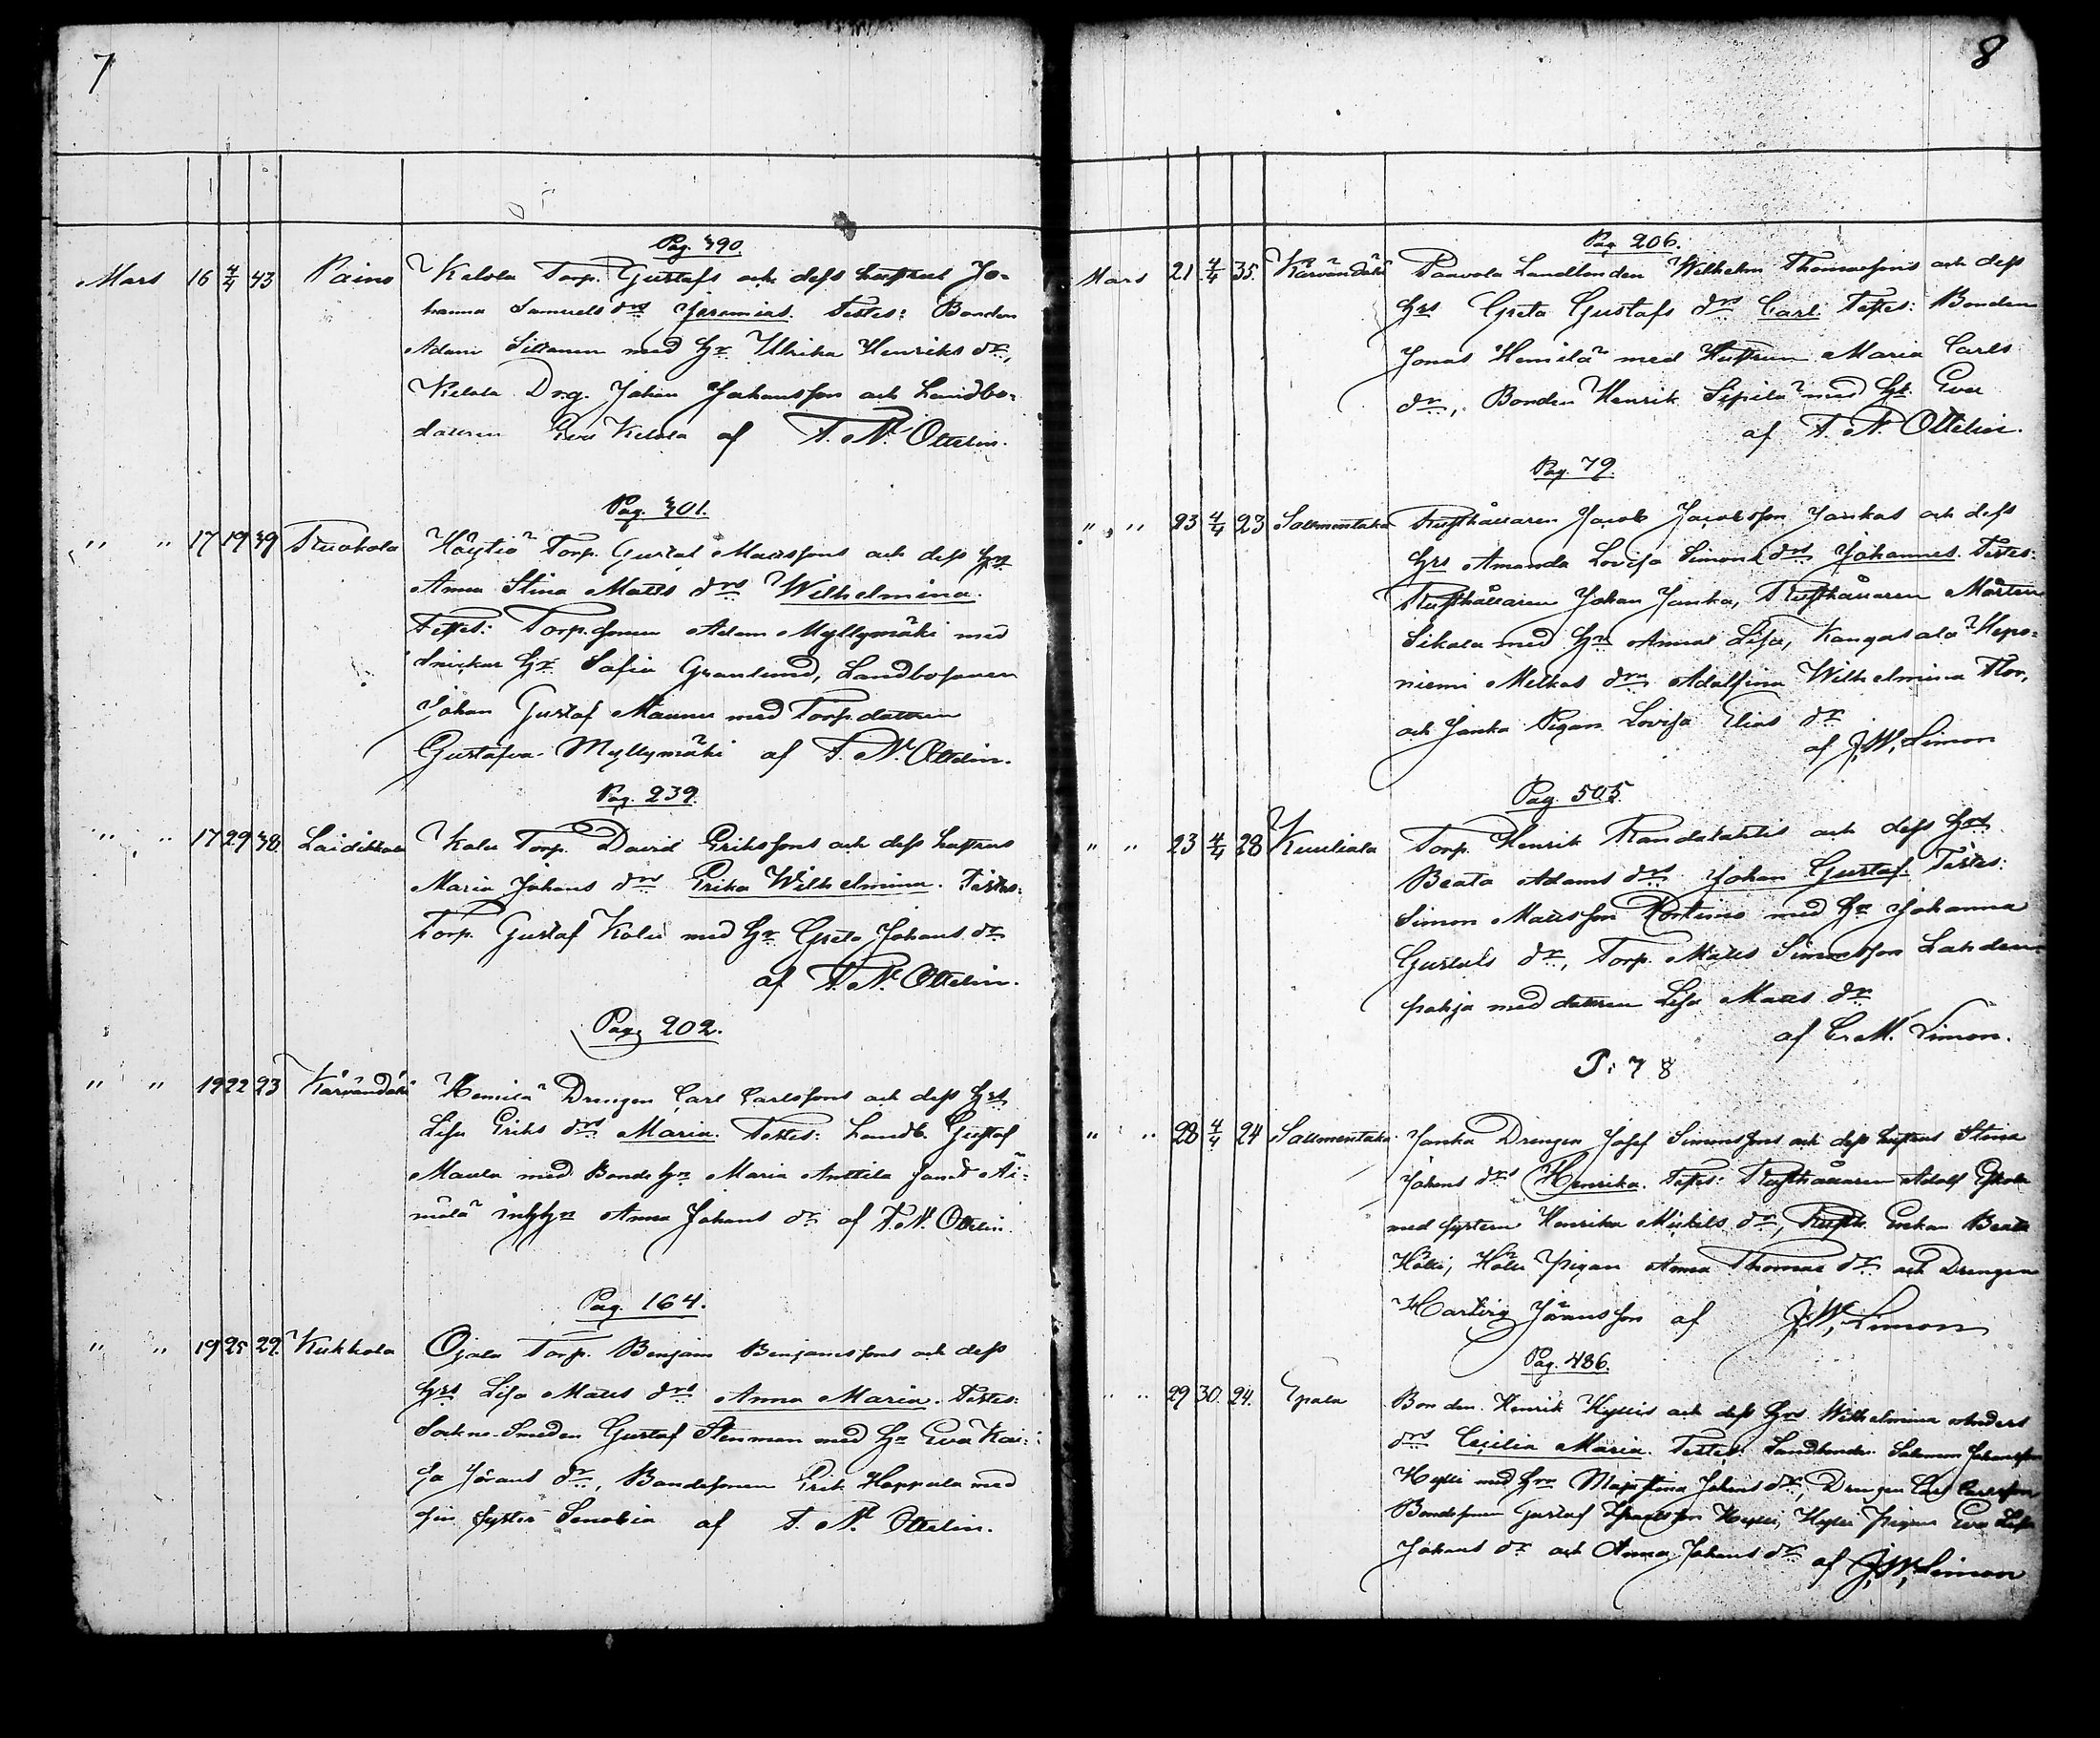 7
Pag. 390.
Mars 16 4/4 43 Paino Kelola Torp. Gustafs och dess hustrus Jo-
hanna Samuels drs Jeremias. Testes: Bonden
Adam Siltanen med hr Ulrika Henriks dr,
Kelola Drg. Johan Johansson och Landbo-
dottren Eva Kelola af F. N. Ottelin.
Pag. 301.
" " 17 19 39 Ruokola Höytiö Torp. Gustaf Mattssons och dess hrs
Anna Stina Matts drs Wilhelmina.
Testes: Torp. sonen Adam Myllymäki med
Snickar hr Sofia Granlund, Landbosonen
Johan Gustaf Maunu med Torp. dottren
Gustafva Myllymäki af F. N. Ottelin.
Pag. 239.
" " 17 29 38 Laidikkala Kalu Torp. David Erikssons och dess hustrus
Maria Johans drs Erika Wilhelmina. Testes:
Torp. Gustaf Kalu med hr Greta Johans dr
af F. N. Ottelin.
Pag. 202.
" " 19 22 23 Kärvändälä Hemilä Drengen Carl Carlssons och dess hrs
Lisa Eriks drs Maria. Testes: Landb. Gustaf
Maula med Bonde hr Maria Anttila samt Äi-
mälä inhhr Anna Johans dr af F. N. Ottelin.
Pag. 164.
" " 19 25 29. Kukkola Ojala Torp. Benjam Benjamssons och dess
hrs Lisa Matts drs Anna Maria. Testes:
Sockne-Smeden Gustaf Stenman med hr Eva Kai-
sa Jörans dr, Bondesonen Erik Hoppula med
sin syster Senobia af F. N. Ottelin.
8
Pag. 206.
Mars 21 4/4 35. Kärvändälä Paavola Landbonden Wilhelm Thomassons och dess
hrs Greta Gustafs drs Carl. Testes: Bonden
Jonas Hemilä med Hustrun Maria Carls
dr, Bonden Henrik Sipilä med hr Eva
af F. N. Ottelin.
Pag. 79.
" " 23 4/4 23 Sallmentaka Rusthållaren Jacob Jacobsson Jankas och dess
hrs Amanda Lovisa Simons drs Johannes. Testes:
Rusthållaren Johan Janka, Rusthållaren Mårten
Sikala med hr Anna Lisa, Kangasala Hepo-
niemi Melkas drn Adolfina Wilhelmina Flor,
och Janka Pigan Lovisa Elias dr
af J. W. Limon
Pag. 505.
" " 23 4/4 28 Kuuliala Torp. Henrik Randalahtis och dess hrs
Beata Adams drs Johan Gustaf. Testes:
Simon Mattsson Kortimo med hr Johanna
Gustafs dr, Torp. Matts Simonsson Lahden-
pohja med dottren Lisa Matts dr
af C. M. Limon.
P: 78
" " 28 4/4 24 Sallmentaka. Janka Drengen Josef Simonssons och dess hustrus Stina
Johans drs Henrika. Testes: Rusthållaren Adolf Eskola
med systern Henrika Mickels dr, Rusth. Enkan Beata
Hölli, Hölli pigan Anna Thomas dr och Drengen
Hartvig Jöransson af J. W. Limon
Pag. 486.
" " 29 30. 24. Epala Bonden Henrik Hyllis och dess hrs Wilhelmina Anders
drs Cecilia Maria. Testes: Landbonden Salomon Johansson
Hylli med hrn Maja Stina Johans dr, Drengen Carl Carlsson
Bondesonen Gustaf Israelsson Hylli, Hylli pigan Eva Lisa
Johans dr och Anna Johans dr af J. W. Limon